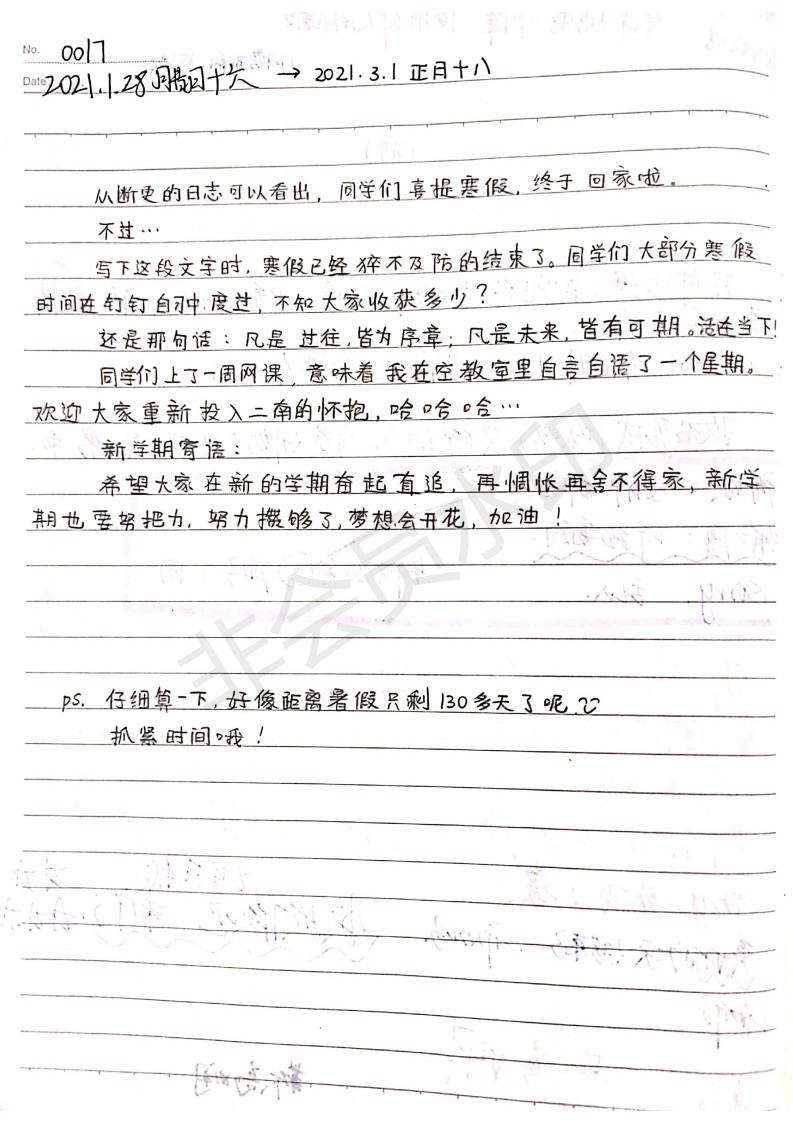 No. 0017
Date 2021.1.28 腊月十六 → 2021.3.1 正月十八
从断更的日志可以看出，同学们喜提寒假，终于回家啦。
不过…
写下这段文字时，寒假已经猝不及防的结束了。同学们大部分寒假
时间在钉钉自习中度过，不知大家收获多少？
还是那句话：凡是过往，皆为序章；凡是未来，皆有可期。活在当下！
同学们上了一周网课，意味着我在空教室里自言自语了一个星期。
欢迎大家重新投入二南的怀抱，哈哈哈…
新学期寄语：
希望大家在新的学期奋起直追，再惆怅再舍不得家，新学
期也要努把力，努力攒够了，梦想会开花，加油！
非会员水印
ps. 仔细算一下，好像距离暑假只剩130多天了呢
抓紧时间哦！